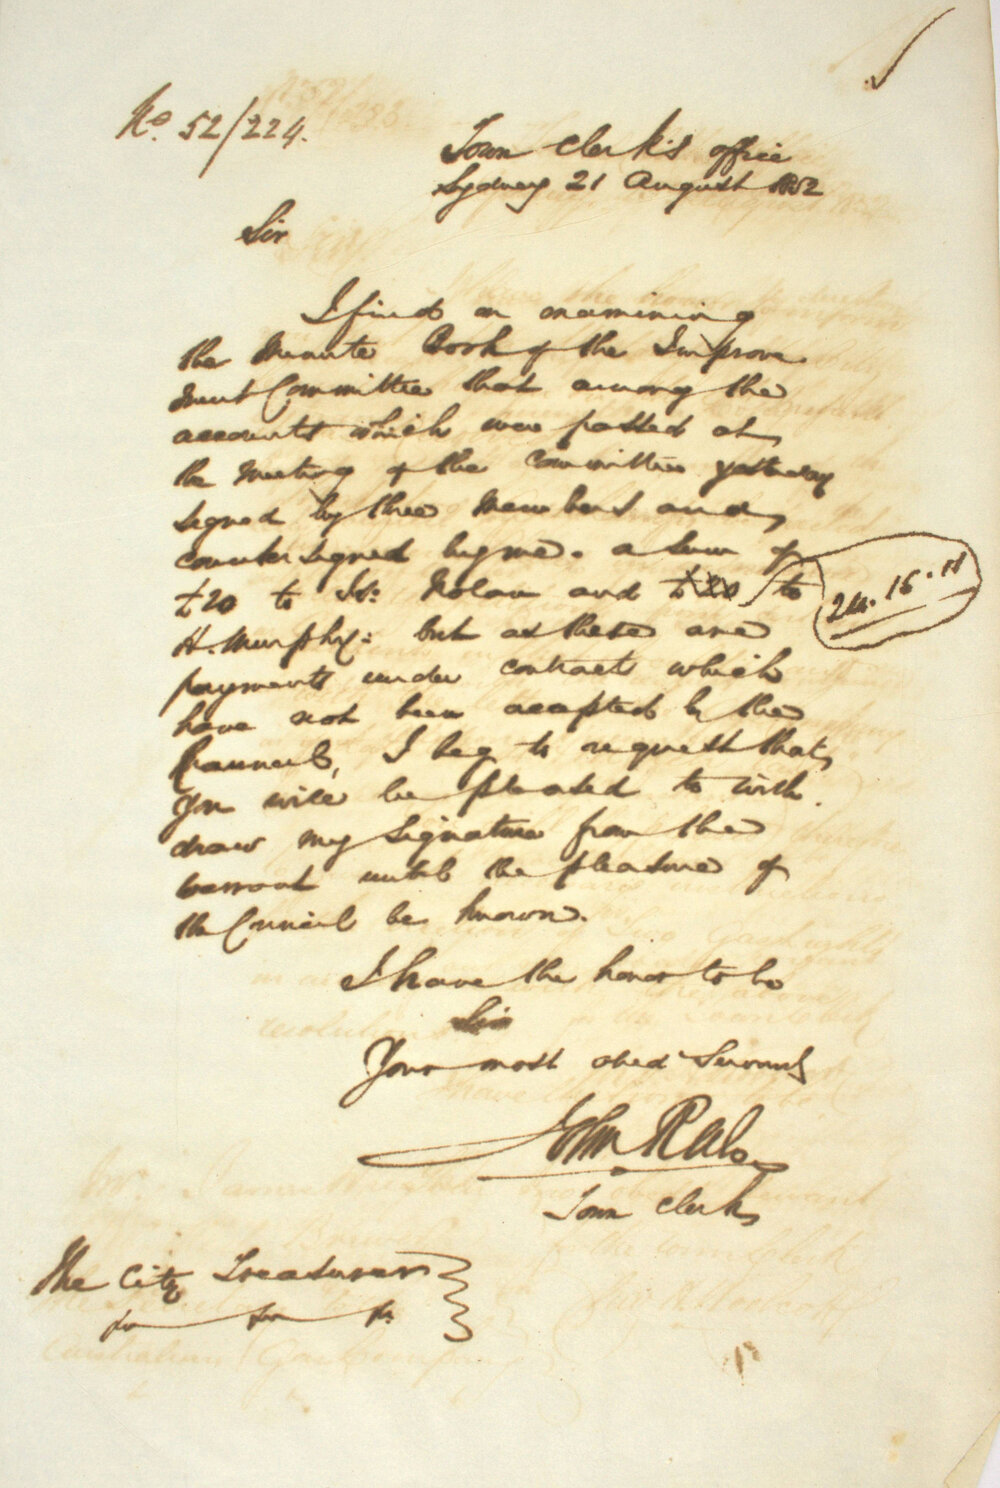 No. 52/224.
Town Clerk's office
Sydney 21 August 1852
Sir
I find on examining
the Minute Book of the Improve
ment Committee that among the
accounts which were passed at
the Meeting of the Committee yesterday
signed by three Members and
countersigned by me. a Sum of
£20 to Js: Nolan and £20 to
24. 16. 11
H. Murphy: but as these are
payments under contracts which
have not been accepted by the
Council, I beg to request that
you will be pleased to with
draw my signature from the
warrant until the pleasure of
the Council be known.
I have the honor to be
Sir
Your most obed Servant
John Rae
Town Clerk
The City Treasurer